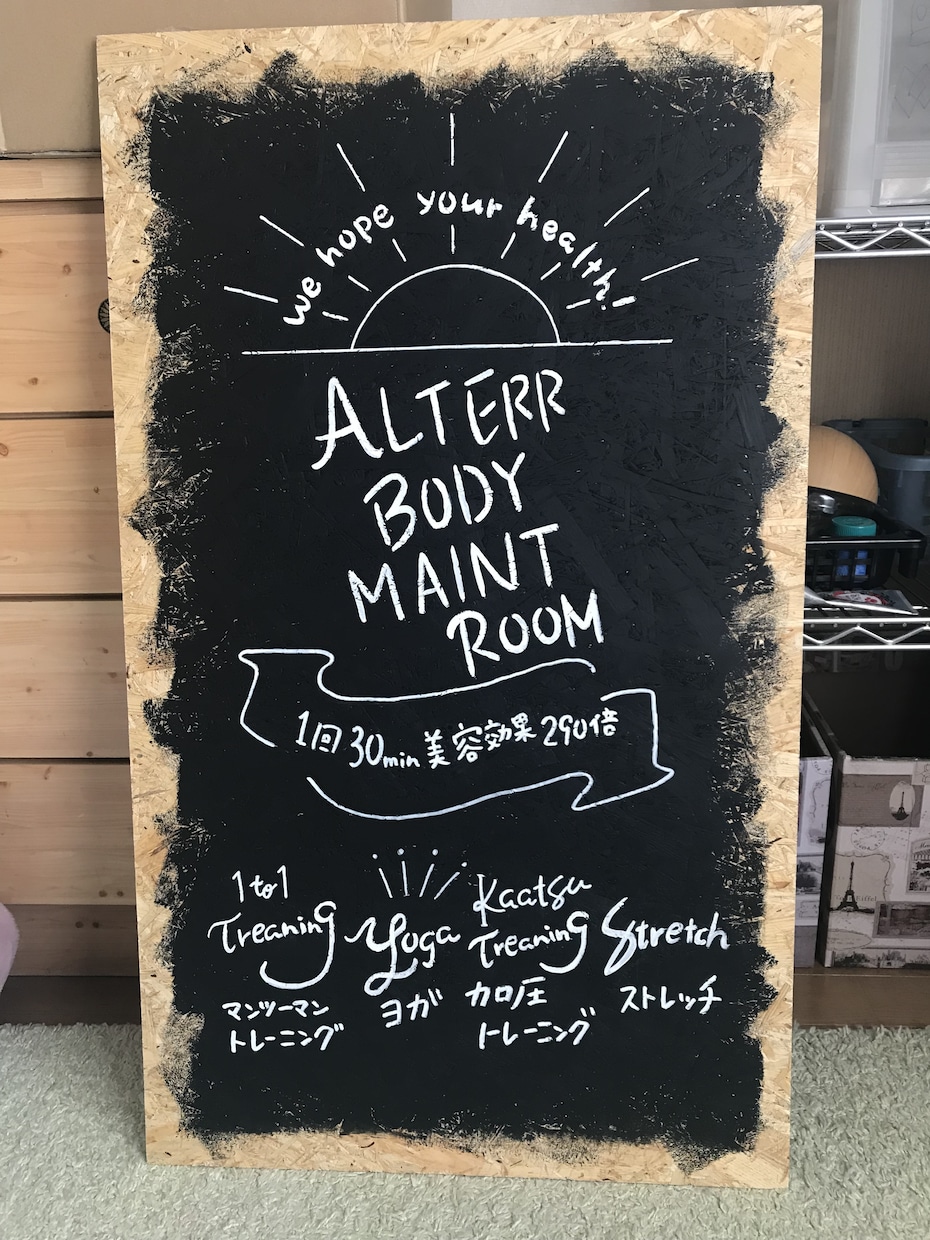 we hope your health!
ALTERR
BODY
MAINT
ROOM
1回30min美容効果290倍
1to1
Treaning
マンツーマン
トレーニング
Yoga
ヨガ
Kaatsu
Treaning
加圧
トレーニング
Stretch
ストレッチ